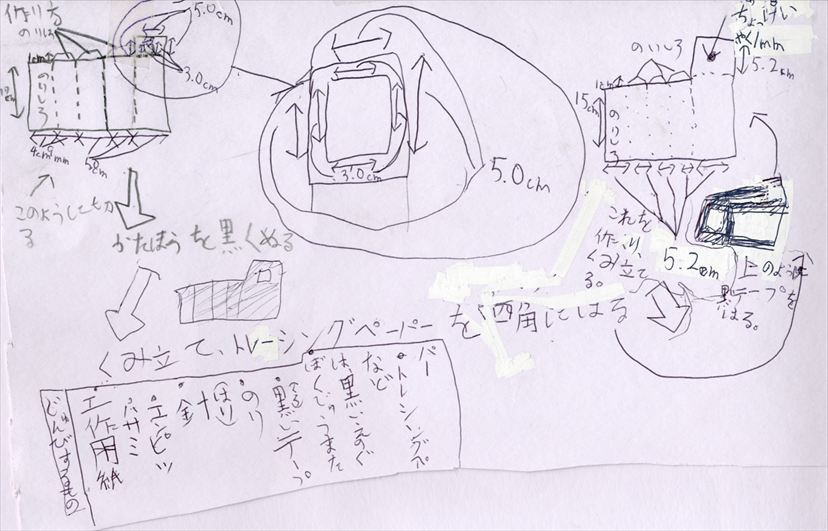 作り方
のりしろ
5.0cm
3.0cm
1cm
のりしろ
4cm9mm
5cm
このようにしてきる
かたほうを黒くぬる
3.0cm
5.0cm
ちょっけい
やく1mm
のりしろ
5.2cm
1cm
15cm
のりしろ
5.2cm
これを
作り、
くみ立て
る。
上のように
黒テープを
はる。
くみ立て、トレーシングペーパーを四角にはる
じゅんびするもの
・工作用紙
・ハサミ
・エンピツ
・針
・のり
・黒いテープ
・ぼくじゅうまた
は、黒いえのぐ
など
・トレーシングペー
パー